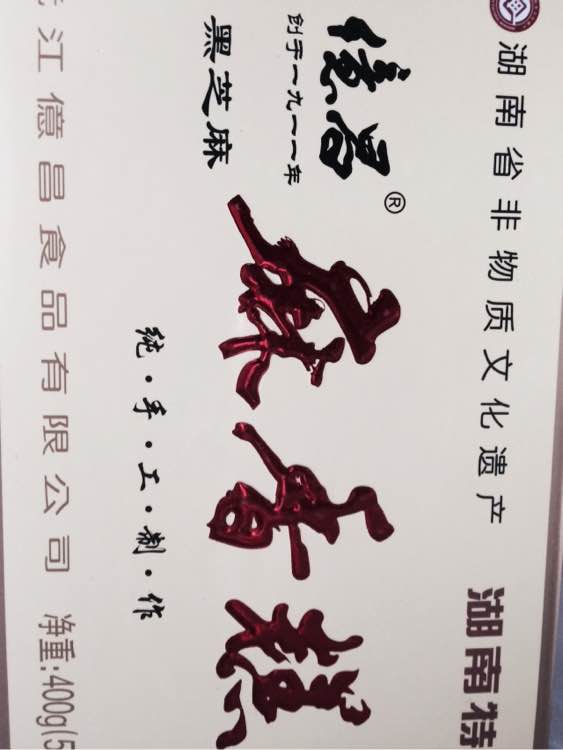 湖南省非物质文化遗产 湖南特
億昌®
创于一九一一年
黑芝麻
麻香糕
纯·手·工·制·作
江億昌食品有限公司 净重:400g(5